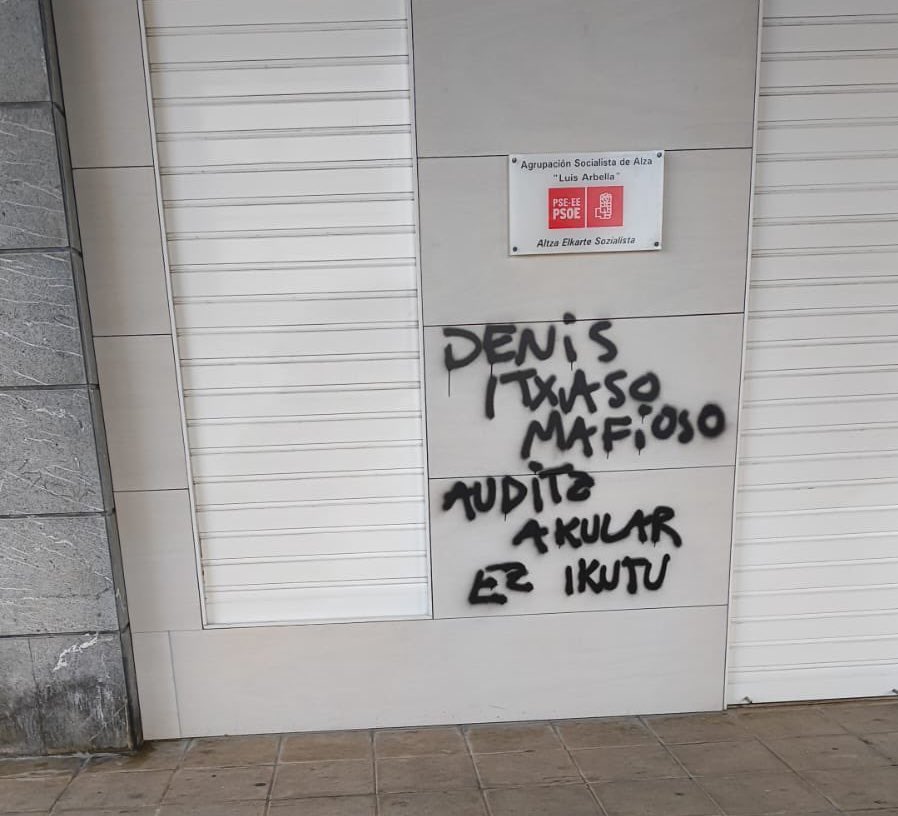 Agrupación Socialista de Alza
"Luis Arbella"
PSE-EE
PSOE
Altza Elkarte Sozialista
DENiS
ITXASO
MAFiOSO
AUDiTZ
AKULAR
EZ IKUTU